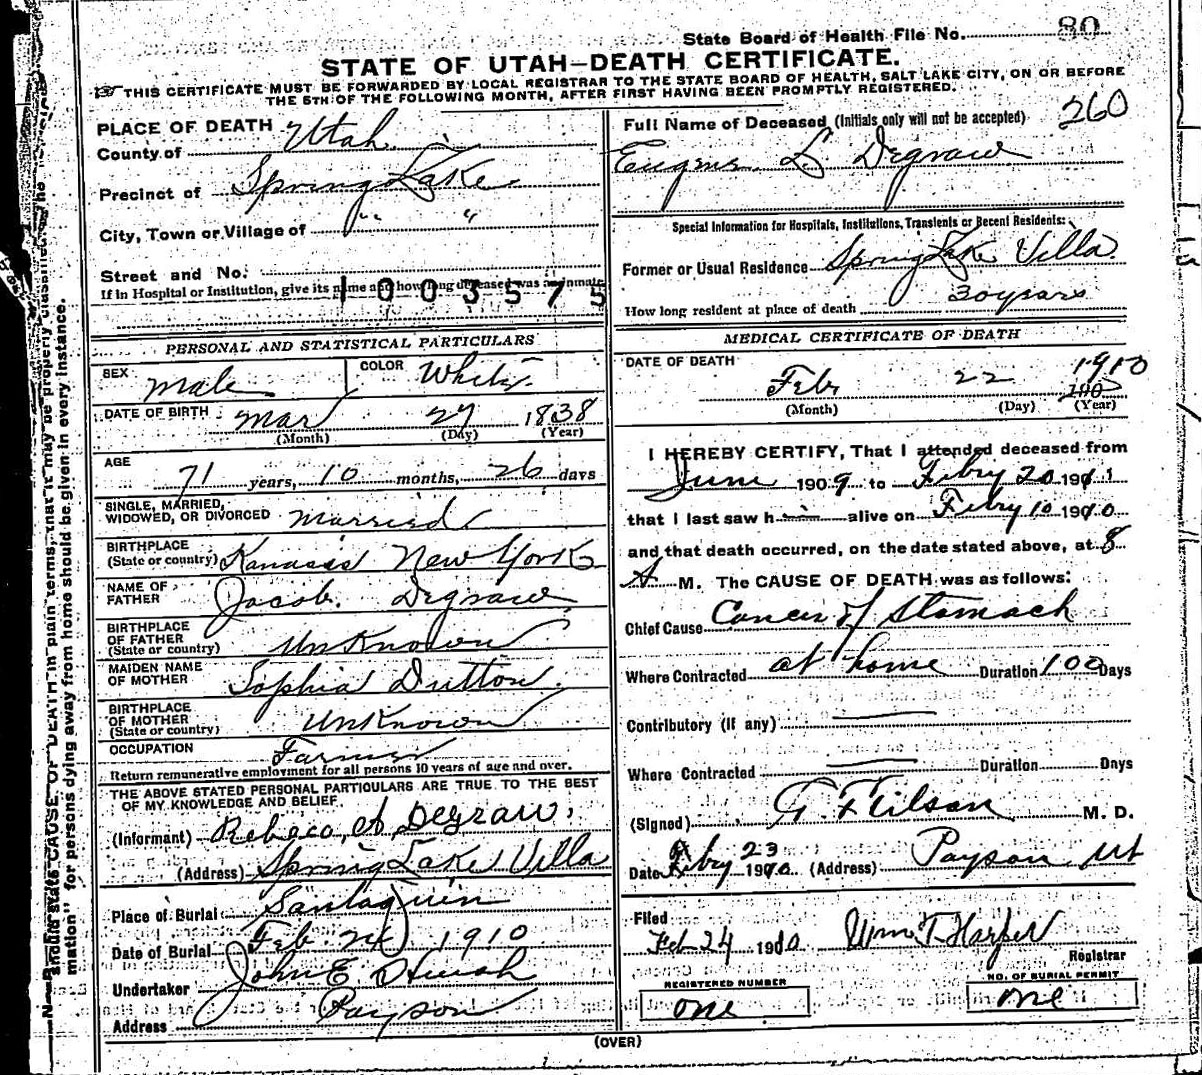 State Board of Health File No. 80
STATE OF UTAH—DEATH CERTIFICATE.
THIS CERTIFICATE MUST BE FORWARDED BY LOCAL REGISTRAR TO THE STATE BOARD OF HEALTH, SALT LAKE CITY, ON OR BEFORE
THE 5TH OF THE FOLLOWING MONTH, AFTER FIRST HAVING BEEN PROMPTLY REGISTERED.
PLACE OF DEATH
County of Utah
Precinct of Spring Lake
City, Town or Village of " "
Street and No.
If in Hospital or Institution, give its name and how long deceased was an inmate
1003575
PERSONAL AND STATISTICAL PARTICULARS
SEX Male COLOR White
DATE OF BIRTH Mar 27 1838
(Month) (Day) (Year)
AGE
71 years, 10 months, 26 days
SINGLE, MARRIED,
WIDOWED, OR DIVORCED Married
BIRTHPLACE
(State or country) New York
NAME OF
FATHER Jacob Degraw
BIRTHPLACE
OF FATHER
(State or country) UnKnown
MAIDEN NAME
OF MOTHER Sophia Dutton
BIRTHPLACE
OF MOTHER
(State or country) UnKnown
OCCUPATION Farmer
Return remunerative employment for all persons 10 years of age and over.
THE ABOVE STATED PERSONAL PARTICULARS ARE TRUE TO THE BEST
OF MY KNOWLEDGE AND BELIEF.
(Informant) Rebeca A Degraw.
(Address) Spring Lake Villa
Place of Burial Santaquin
Date of Burial Feb. 24 1910
Undertaker John E
Address Payson
260
Full Name of Deceased (Initials only will not be accepted)
Eugene L Degraw
Special Information for Hospitals, Institutions, Transients or Recent Residents:
Former or Usual Residence Spring Lake Villa
How long resident at place of death 30 years
MEDICAL CERTIFICATE OF DEATH
DATE OF DEATH
Feb 22 1910
190
(Month) (Day) (Year)
I HEREBY CERTIFY, That I attended deceased from
June 1909 to Febry 20 191
that I last saw h alive on Febry 10 1910
and that death occurred, on the date stated above, at 8
A M. The CAUSE OF DEATH was as follows:
Chief Cause Cancer of Stomach
Where Contracted at home Duration 100 Days
Contributory (if any)
Where Contracted Duration Days
(Signed) M. D.
Date Febry 23 1910 (Address) Payson Ut
Filed
Feb 24 1910 Wm T Harper
Registrar
REGISTERED NUMBER
one
NO. OF BURIAL PERMIT
one
(OVER)
should state CAUSE OF DEATH in plain terms, that it may be properly classified. The
mation" for persons dying away from home should be given in every instance.